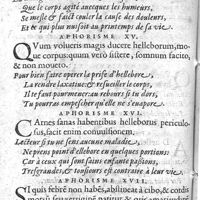 Que le corps agité auecques les humeurs,
Se mesle & faict couler la cause des douleurs,
Et ce qui plus nuisoit au printemps de sa vie.
APHORISME XV.
QVum volueris magis ducere helleborum, mo-
que corpus: quum verò sistere, somnum facito,
& non moueto.
Pour bien faire operer la prise d'hellebore,
La rendre lucratiue & recueillir le corps,
Il se faut pourmener au rebours si tu dors,
Tu pourras empescher qu'elle ne s'euapore.
APHORISME XVI.
CArnes sanas habentibus helleborus periculo-
sus, facit enim conuulsionem.
Lecteur si tu ne sens aucune maladie,
Ne prens point d'ellebore en quelques portions:
Car à ceux qui sont sains enfante passions,
Tres grandes & tousiours est contraire à leur vie.
APHORISME XVII.
SI quis febrẽ non habẽs, abstineat à cibo, & cordis